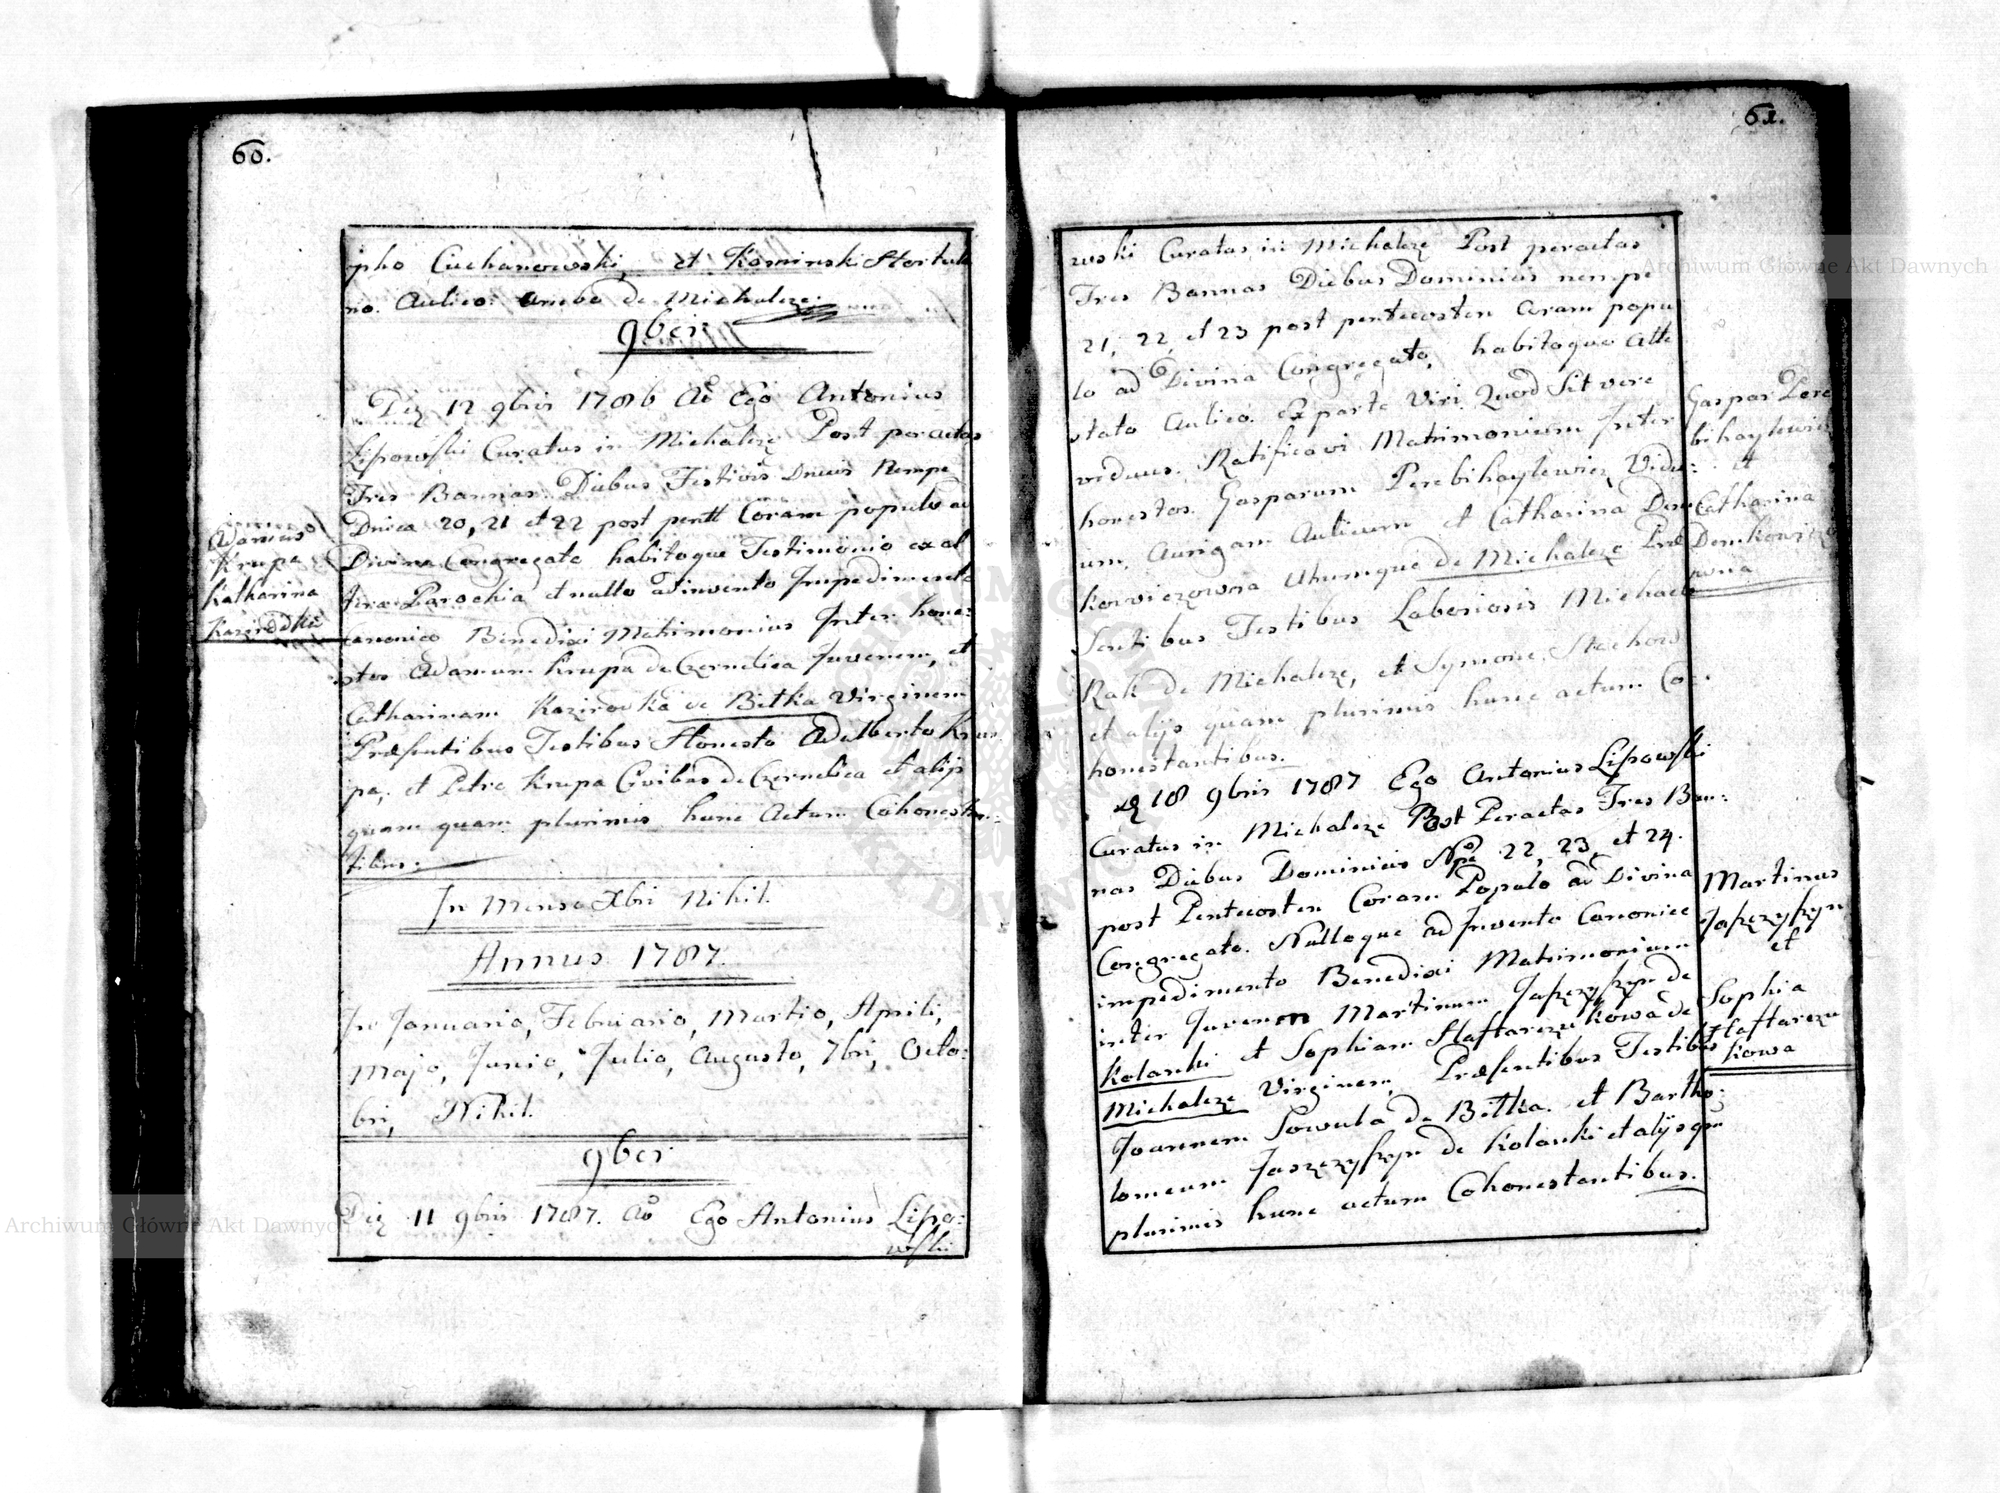 60.
pho Ciechanowski, et Kominski Hortula
no. Aulico: ambo de Michalcze.
9bris
Die 12 9bris 1786 Aō Ego Antonius
Lipowski Curatus in Michalcze Post peractas
Tres Bannas Diebus Festivis Dnicis Nempe
Dnica 20, 21 et 22 post pentt Coram populo ad
Divina Congregato habitoque Testimonio ex al
tera Parochia et nullo adinvento Impedimento
Canonico Benedixi Matrimonium Inter hone:
stos Adamum Krupa de Czernelica Juvenem, et
Catharinam Kozirodka de Bitka Virginem
Præsentibus Testibus Honesto Adalberto Kru
pa, et Petro Krupa Civibus de Czernelica et alijs
quam quam plurimis hunc Actum Cohonestan:
tibus:
Adamus
Krupa
Katharina
Kozirodka
In Mense Xbri Nihil.
Annus 1787.
In Januario, Februario, Martio, Aprili,
Majo, Junio, Julio, Augusto, 7bri, Octo:
bri, Nihil.
9ber
Die 11 9bris 1787. Aō Ego Antonius Lipo:
wski
61.
wski Curatus in Michalcze Post peractas
Tres Bannas Diebus Dominicis nempe
21, 22, et 23 post pentecosten Coram popu
lo ad Divina Congregato, habitoque Atte
stato Aulico ex parte Viri Quod Sit vere
viduus. Ratificavi Matrimonium Inter
honestos Gasparum Perebihaylewicz Vidu:
um, Aurigam Aulicum et Catharina Dem
kowiczowna Utrumque de Michalcze Præ
Sentibus Testibus Laboriosis Michaele
Rak de Michalcze, et Symone Stachow
et alijs quam plurimis hunc actum Co:
honestantibus.
Gaspar Pere
bihaylewicz
et
Catharina
Demkowiczo
wna
18 9bris 1787 Ego Antonius Lipowski
Curatus in Michalcze Post Peractas Tres Ban:
nas Diebus Dominicis Npe 22, 23, et 24.
post Pentecosten Coram Populo ad Divina
Congregato. Nulloque ad Invento Canonico
impedimento Benedixi Matrimonium
inter Juvenem Martinum Jaszczyszyn de
Kolanki et Sophiam Haftarczukowa de
Michalcze Virginem, Præsentibus Testibus
Joannem Sowula de Bitka. et Bartho:
lomeum Jaszczyszyn de Kolanki et alijs qm
plurimis hunc actum Cohonestantibus.
Martinus
Jaszczyszyn
et
Sophia
Haftarczu
kowa
Archiwum Główne Akt Dawnych
Archiwum Główne Akt Dawnych
ARCHIWUM GŁÓWNE AKT DAWNYCH